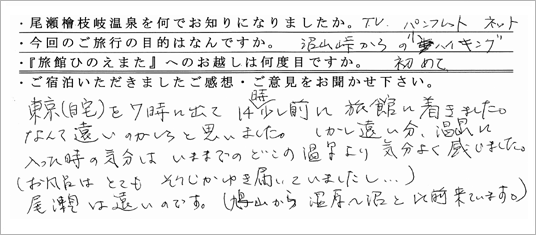 ・尾瀬檜枝岐温泉を何でお知りになりましたか。TV. パンフレット ネット
・今回のご旅行の目的はなんですか。沼山峠からのハイキング
・『旅館ひのえまた』へのお越しは何度目ですか。初めて
・ご宿泊いただきましたご感想・ご意見をお聞かせ下さい。
東京(自宅)を7時に出て14時少し前に旅館に着きました。
なんて遠いのかしらと思いました。しかし遠い分、温泉に
入った時の気分はいままでのどこの温泉より気分よく感じました。
(お風呂はとてもそうじがゆき届いていましし…)
尾瀬は遠いのです。(鳩山から沼と以前来ています。)